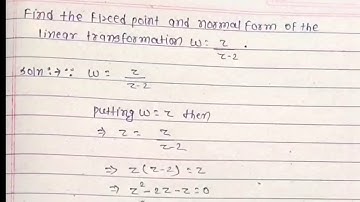 Find the fixed point and normal form of the
linear transformation w = z/z-2 .
soln :→ ∵ w = z/z-2
putting w = z then
⇒ z = z/z-2
⇒ z(z-2) = z
⇒ z²-2z-z=0